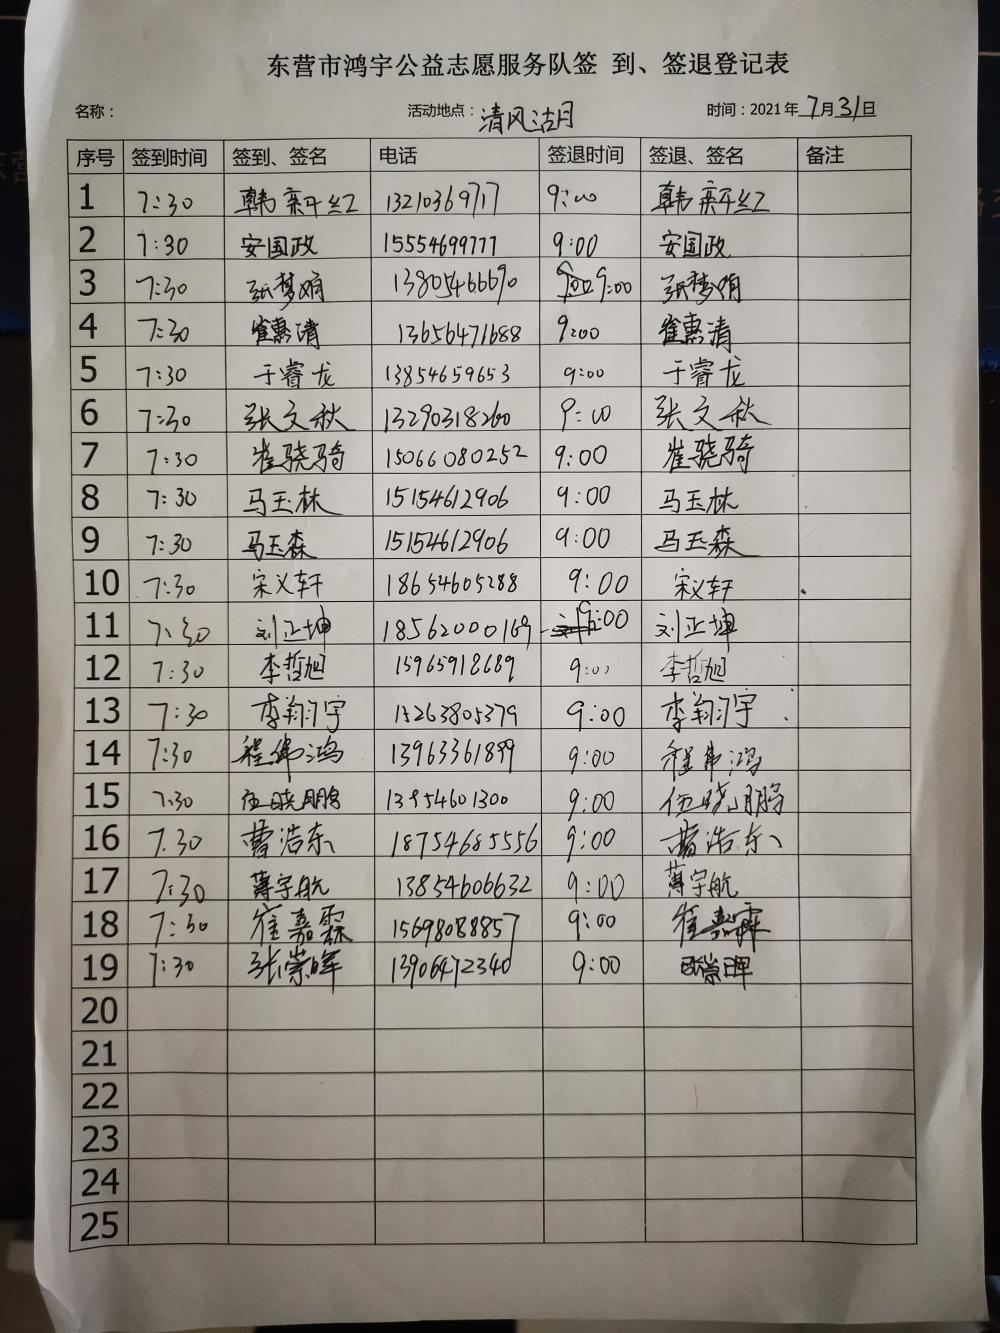 东营市鸿宇公益志愿服务队签 到、签退登记表
名称： 活动地点：清风湖 时间：2021年7月31日
序号 签到时间 签到、签名 电话 签退时间 签退、签名 备注
1 7:30 韩 红 13210369717 9:00 韩 红
2 7:30 安国政 15554699777 9:00 安国政
3 7:30 张梦娟 13805466690 9:00 张梦娟
4 7:30 崔惠清 13656471688 9:00 崔惠清
5 7:30 于睿龙 13854659653 9:00 于睿龙
6 7:30 张文秋 13290318260 9:00 张文秋
7 7:30 崔骁骑 15066080252 9:00 崔骁骑
8 7:30 马玉林 15154612906 9:00 马玉林
9 7:30 马玉森 15154612906 9:00 马玉森
10 7:30 宋义轩 18654605288 9:00 宋义轩
11 7:30 刘正坤 18562000169 9:00 刘正坤
12 7:30 李哲旭 15965918689 9:00 李哲旭
13 7:30 李翔宇 15263805379 9:00 李翔宇
14 7:30 程伟鸿 13963361899 9:00 程伟鸿
15 7:30 伍晓鹏 13954601300 9:00 伍晓鹏
16 7.30 曹浩东 18754685556 9:00 曹浩东
17 7:30 薄宇航 13854606632 9:00 薄宇航
18 7:30 崔嘉霖 15698088857 9:00 崔嘉霖
19 7:30 张崇晖 13906472340 9:00 张崇晖
20
21
22
23
24
25